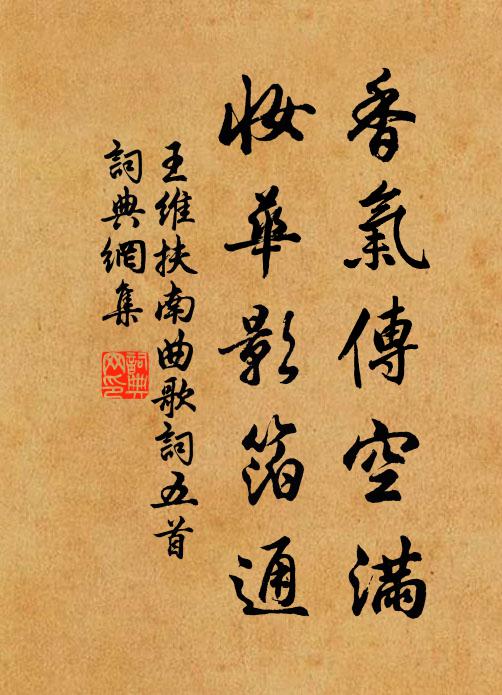 香氣傳空滿
妝華影箔通
王維扶南曲歌詞五首
詞典網集
詞典
网印